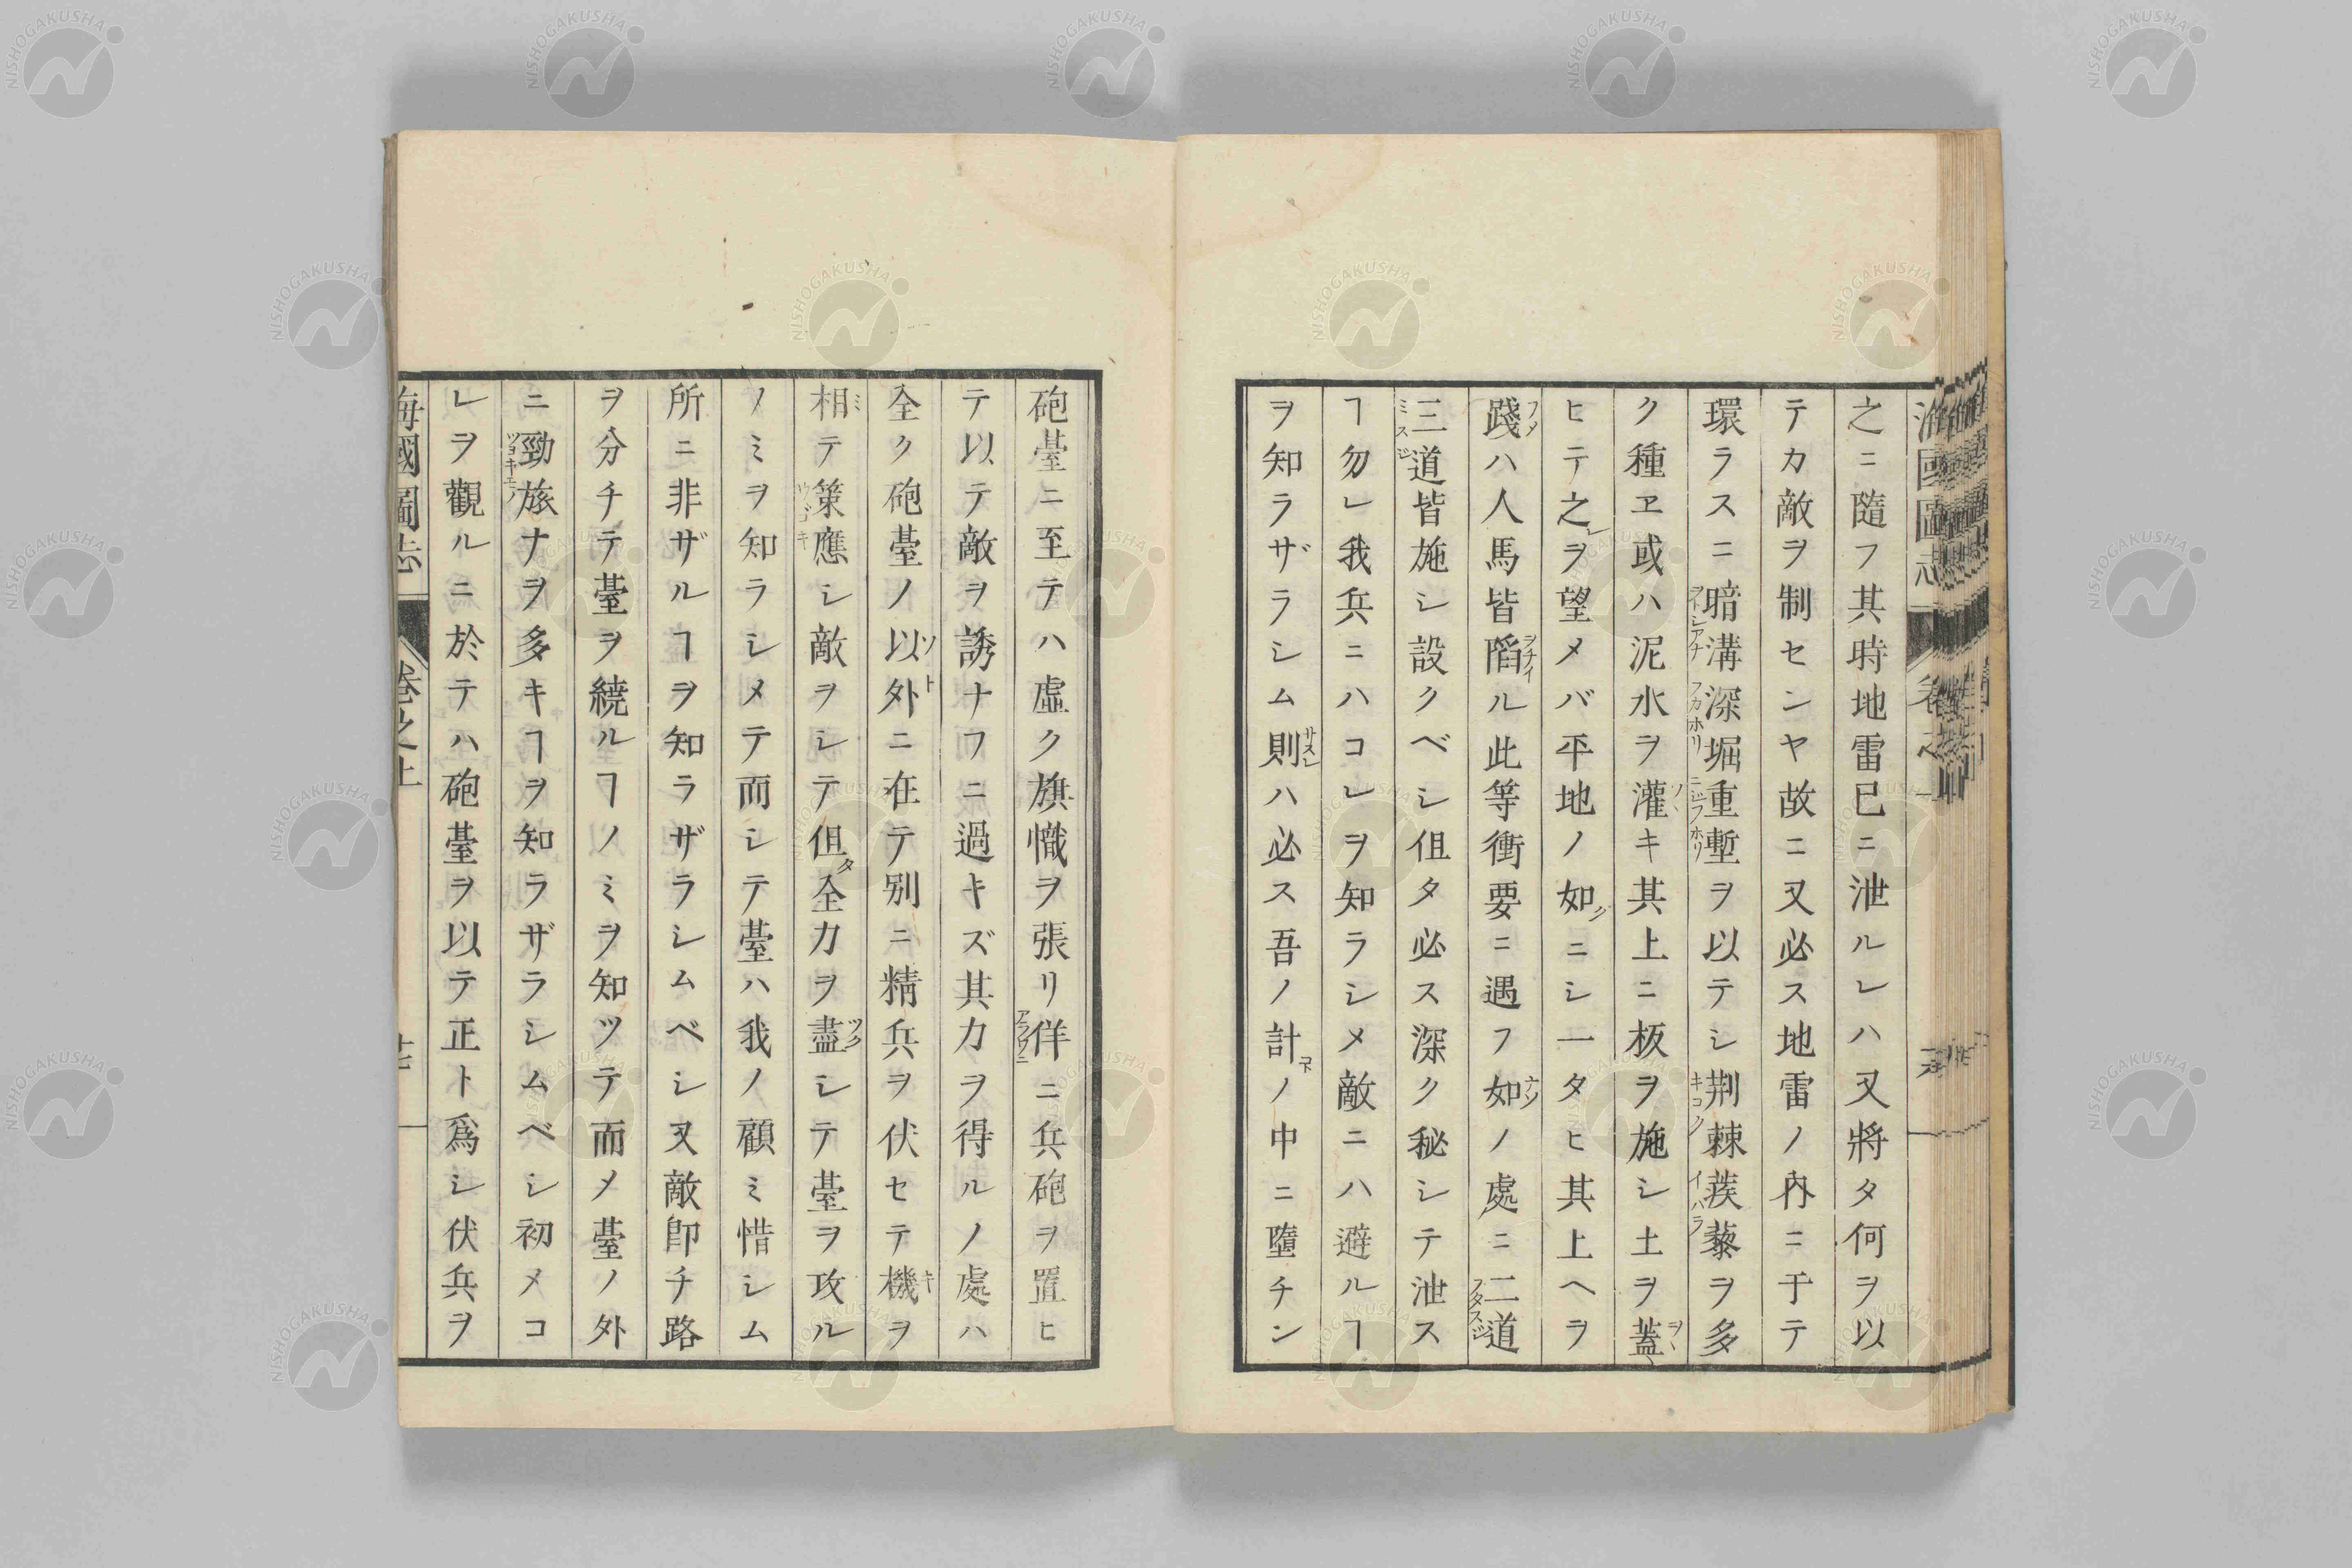 之ニ隨フ其時地雷已ニ泄ルレハ又將タ何ヲ以
テカ敵ヲ制センヤ故ニ又必ス地雷ノ內ニ于テ
環ラスニ暗溝深堀重塹ヲ以テシ荆棘蒺藜ヲ多
ク種ヱ或ハ泥水ヲ灌キ其上ニ板ヲ施シ土ヲ蓋
ヒテ之ヲ望メバ平地ノ如クニシ一タヒ其上ヘヲ
踐ハ人馬皆陷ル此等衝要ニ遇フ如ノ處ニ二道
三道皆施シ設クベシ伹タ必ス深ク秘シテ泄ス
ヿ勿レ我兵ニハコレヲ知ラシメ敵ニハ避ルヿ
ヲ知ラザラシム則ハ必ス吾ノ計ノ中ニ墮チン
砲臺ニ至テハ虛ク旗幟ヲ張リ佯ニ兵砲ヲ置ヒ
テ以テ敵ヲ誘ナフニ過キズ其力ヲ得ルノ處ハ
全ク砲臺ノ以外ニ在テ別ニ精兵ヲ伏セテ機ヲ
相テ策應シ敵ヲシテ伹全力ヲ盡シテ臺ヲ攻ル
ノミヲ知ラシメテ而シテ臺ハ我ノ顧ミ惜シム
所ニ非ザルヿヲ知ラザラシムベシ又敵卽チ路
ヲ分チテ臺ヲ繞ルヿノミヲ知ツテ而メ臺ノ外
ニ勁旅ナヲ多キヿヲ知ラザラシムベシ初メコ
レヲ觀ルニ於テハ砲臺ヲ以テ正ト爲シ伏兵ヲ
海國圖志 卷之上